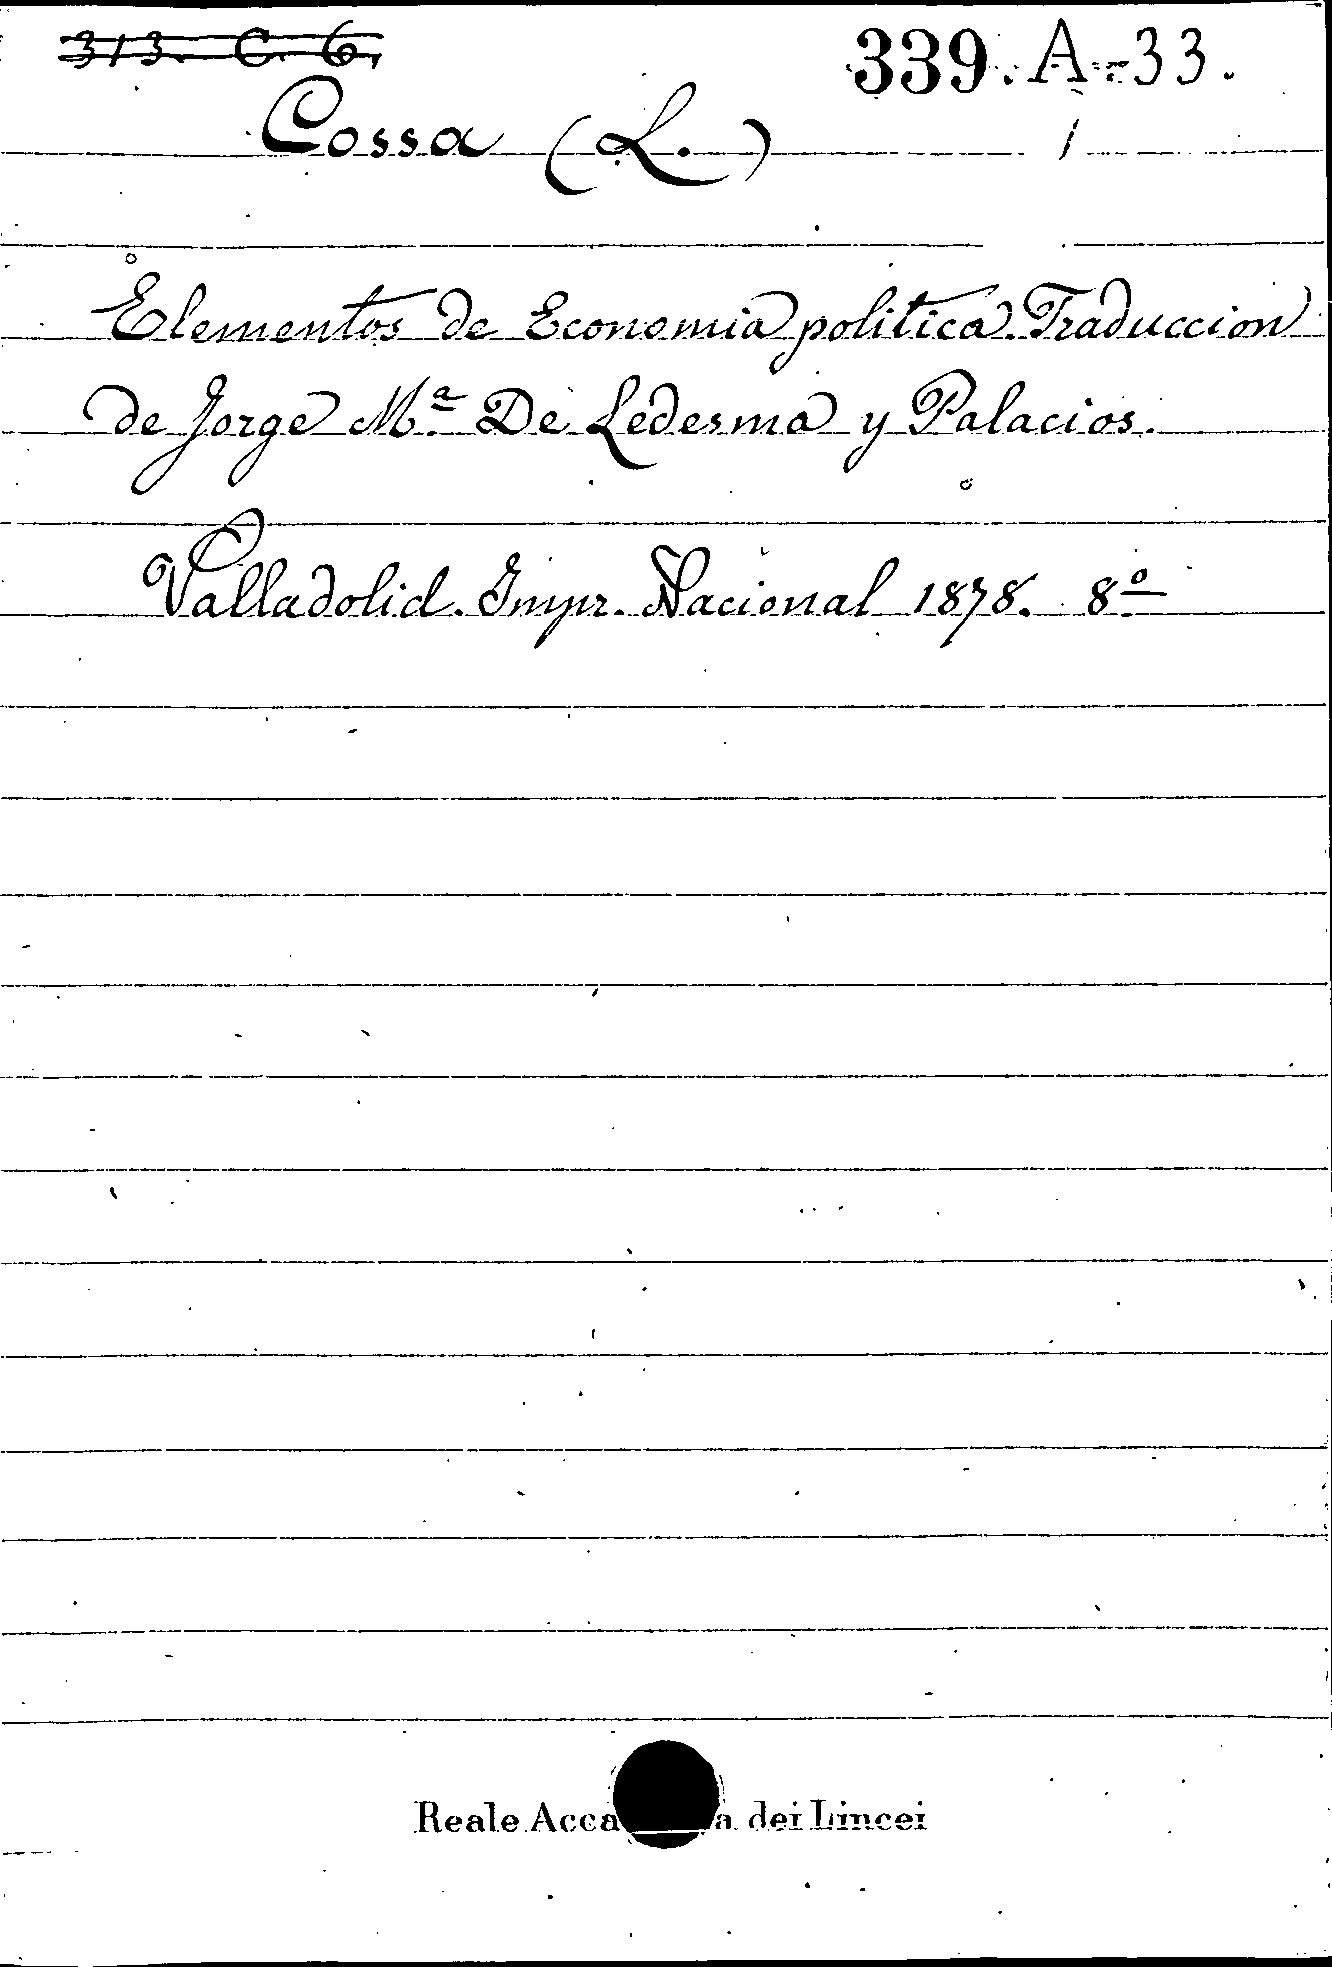 313. C. 6.
339. A-33.
Cossa (L.) 1
Elementos de Economia politica. Traduccion
de Jorge Mª De Ledesma y Palacios.
Valladolid. Impr. Nacional 1878. 8º
Reale Acca a dei Lincei